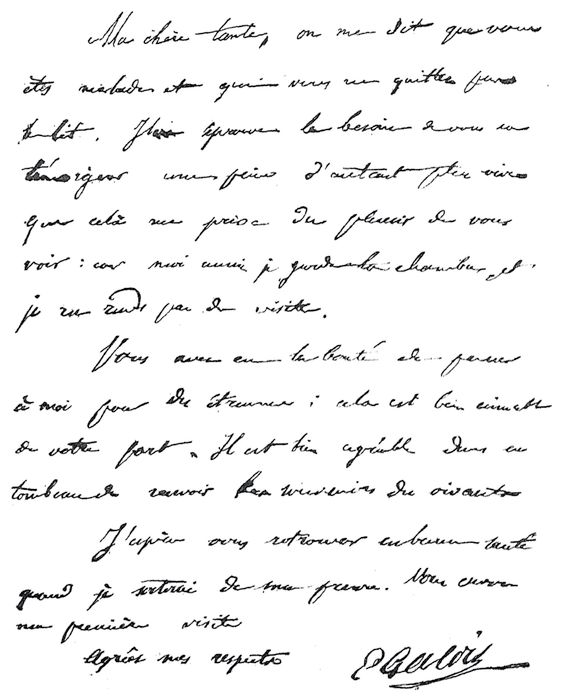 Ma chère tante, on me dit que vous
êtes malade et que vous ne quittez pas
le lit. J'éprouve le besoin de vous en
témoigner une peine d'autant plus vive
que celà me prive du plaisir de vous
voir : car moi aussi je garde la chambre, et
je ne rends pas de visite.
Vous avez eu la bonté de penser
à moi pour des étrennes ; cela est bien aimable
de votre part. Il est bien agréable dans un
tombeau de recevoir les souvenirs des vivants
J'espère vous retrouver en bonne santé
quand je sortirai de ma prison. Vous aurez
ma première visite
Agréez mes respects E Galois